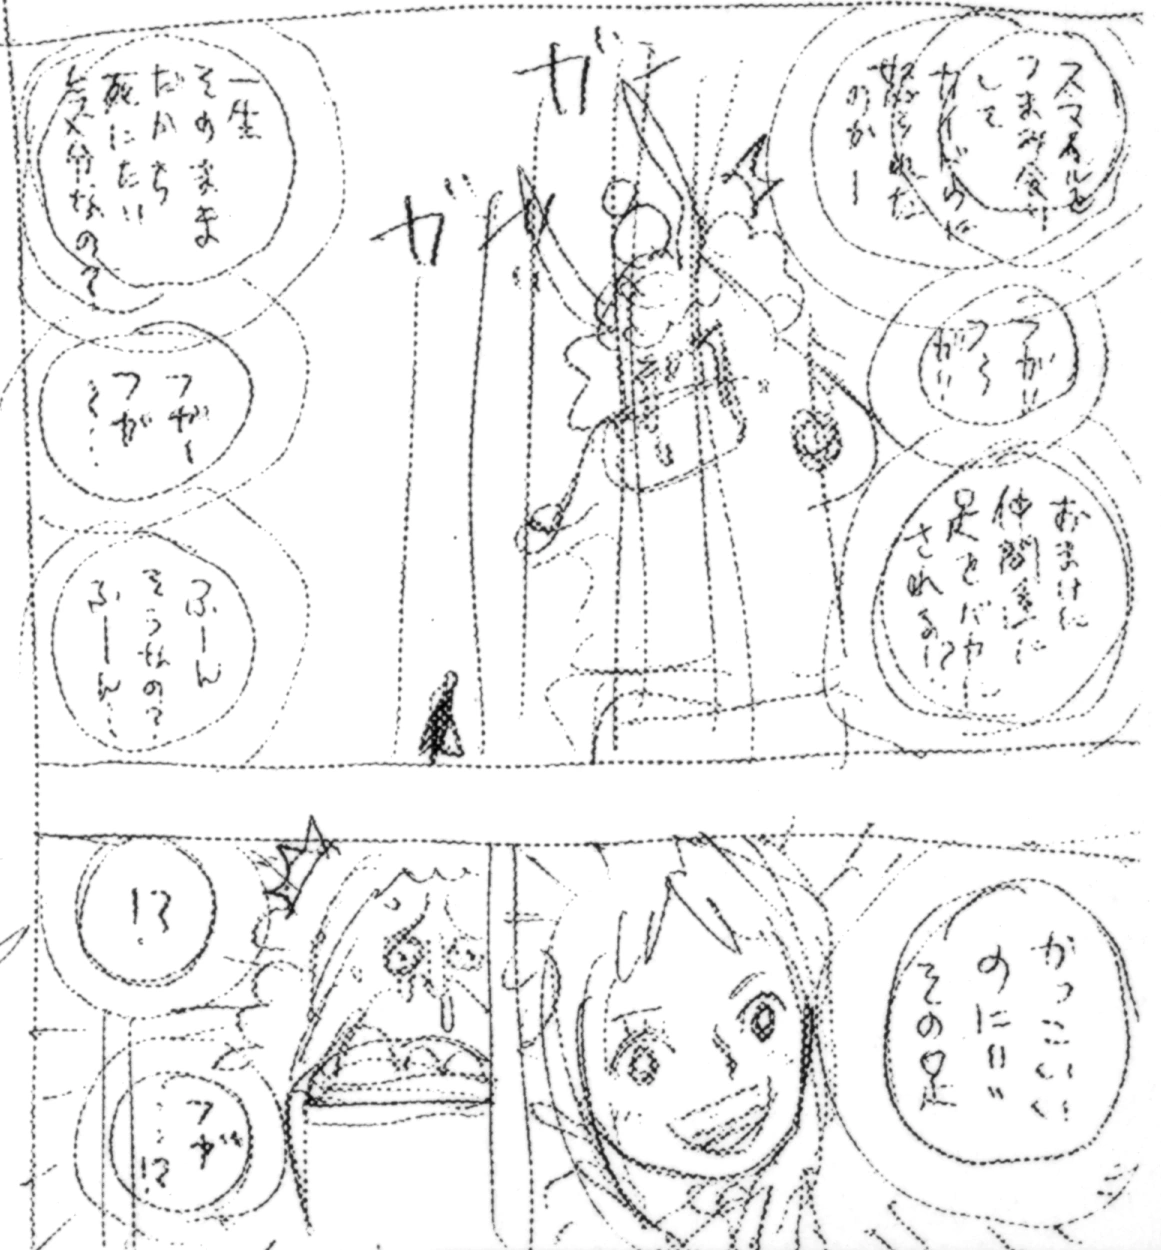 スマイルを
つまみ食い
して
カイドウに
怒られた
のかー
つがい
つ~
がい
おまけに
仲間達に
足をバカに
される!?
ガ
ガ
一生
そのまま
だから
死にたい
気分なの?
つがー
つが
~…
ふーん
そうなの?
ふーん
かっこいい
のに!!
その足
!?
つが
…!?